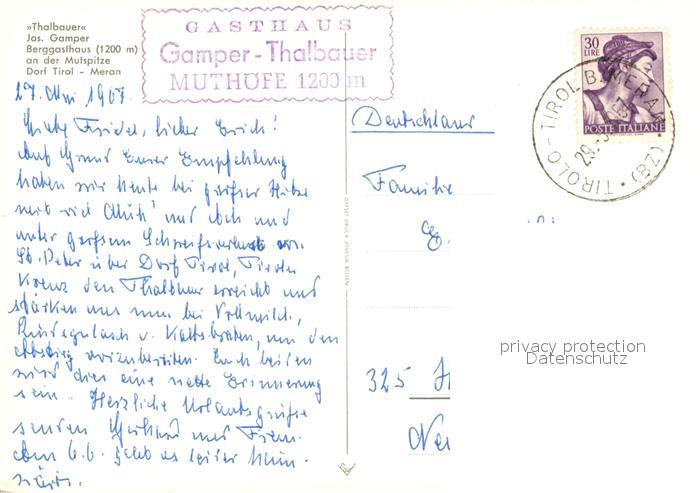 »Thalbauer«
Jos. Gamper
Berggasthaus (1200 m)
an der Mutspitze
Dorf Tirol - Meran
GASTHAUS
Gamper-Thalbauer
MUTHÖFE 1200 m
30
LIRE
POSTE ITALIANE
TIROLO-TIROL B. MERAN (BZ)
27. Mai 1967
Liebe Friedel, lieber Erich!
Auf Grund Eurer Empfehlung
haben wir heute bei großer Hitze
mit viel Müh' uns doch und
unter großem Schweißverlust von
St. Peter über Dorf Tirol, Tiroler
Kreuz den Thalbauer erreicht und
stärken uns nun bei Vollmilch,
Rindsgulasch u. Kalbsbraten, um den
Abstieg vorzubereiten. Euch beiden
wird dies eine nette Erinnerung
sein. Herzliche Urlaubsgrüße
senden Gerhard und
Am 6.6. geht es leider heim-
wärts.
Deutschland
Familie
E.
325 H
Ne
OFFSET DRUCK ATHESIA BOZEN
privacy protection
Datenschutz